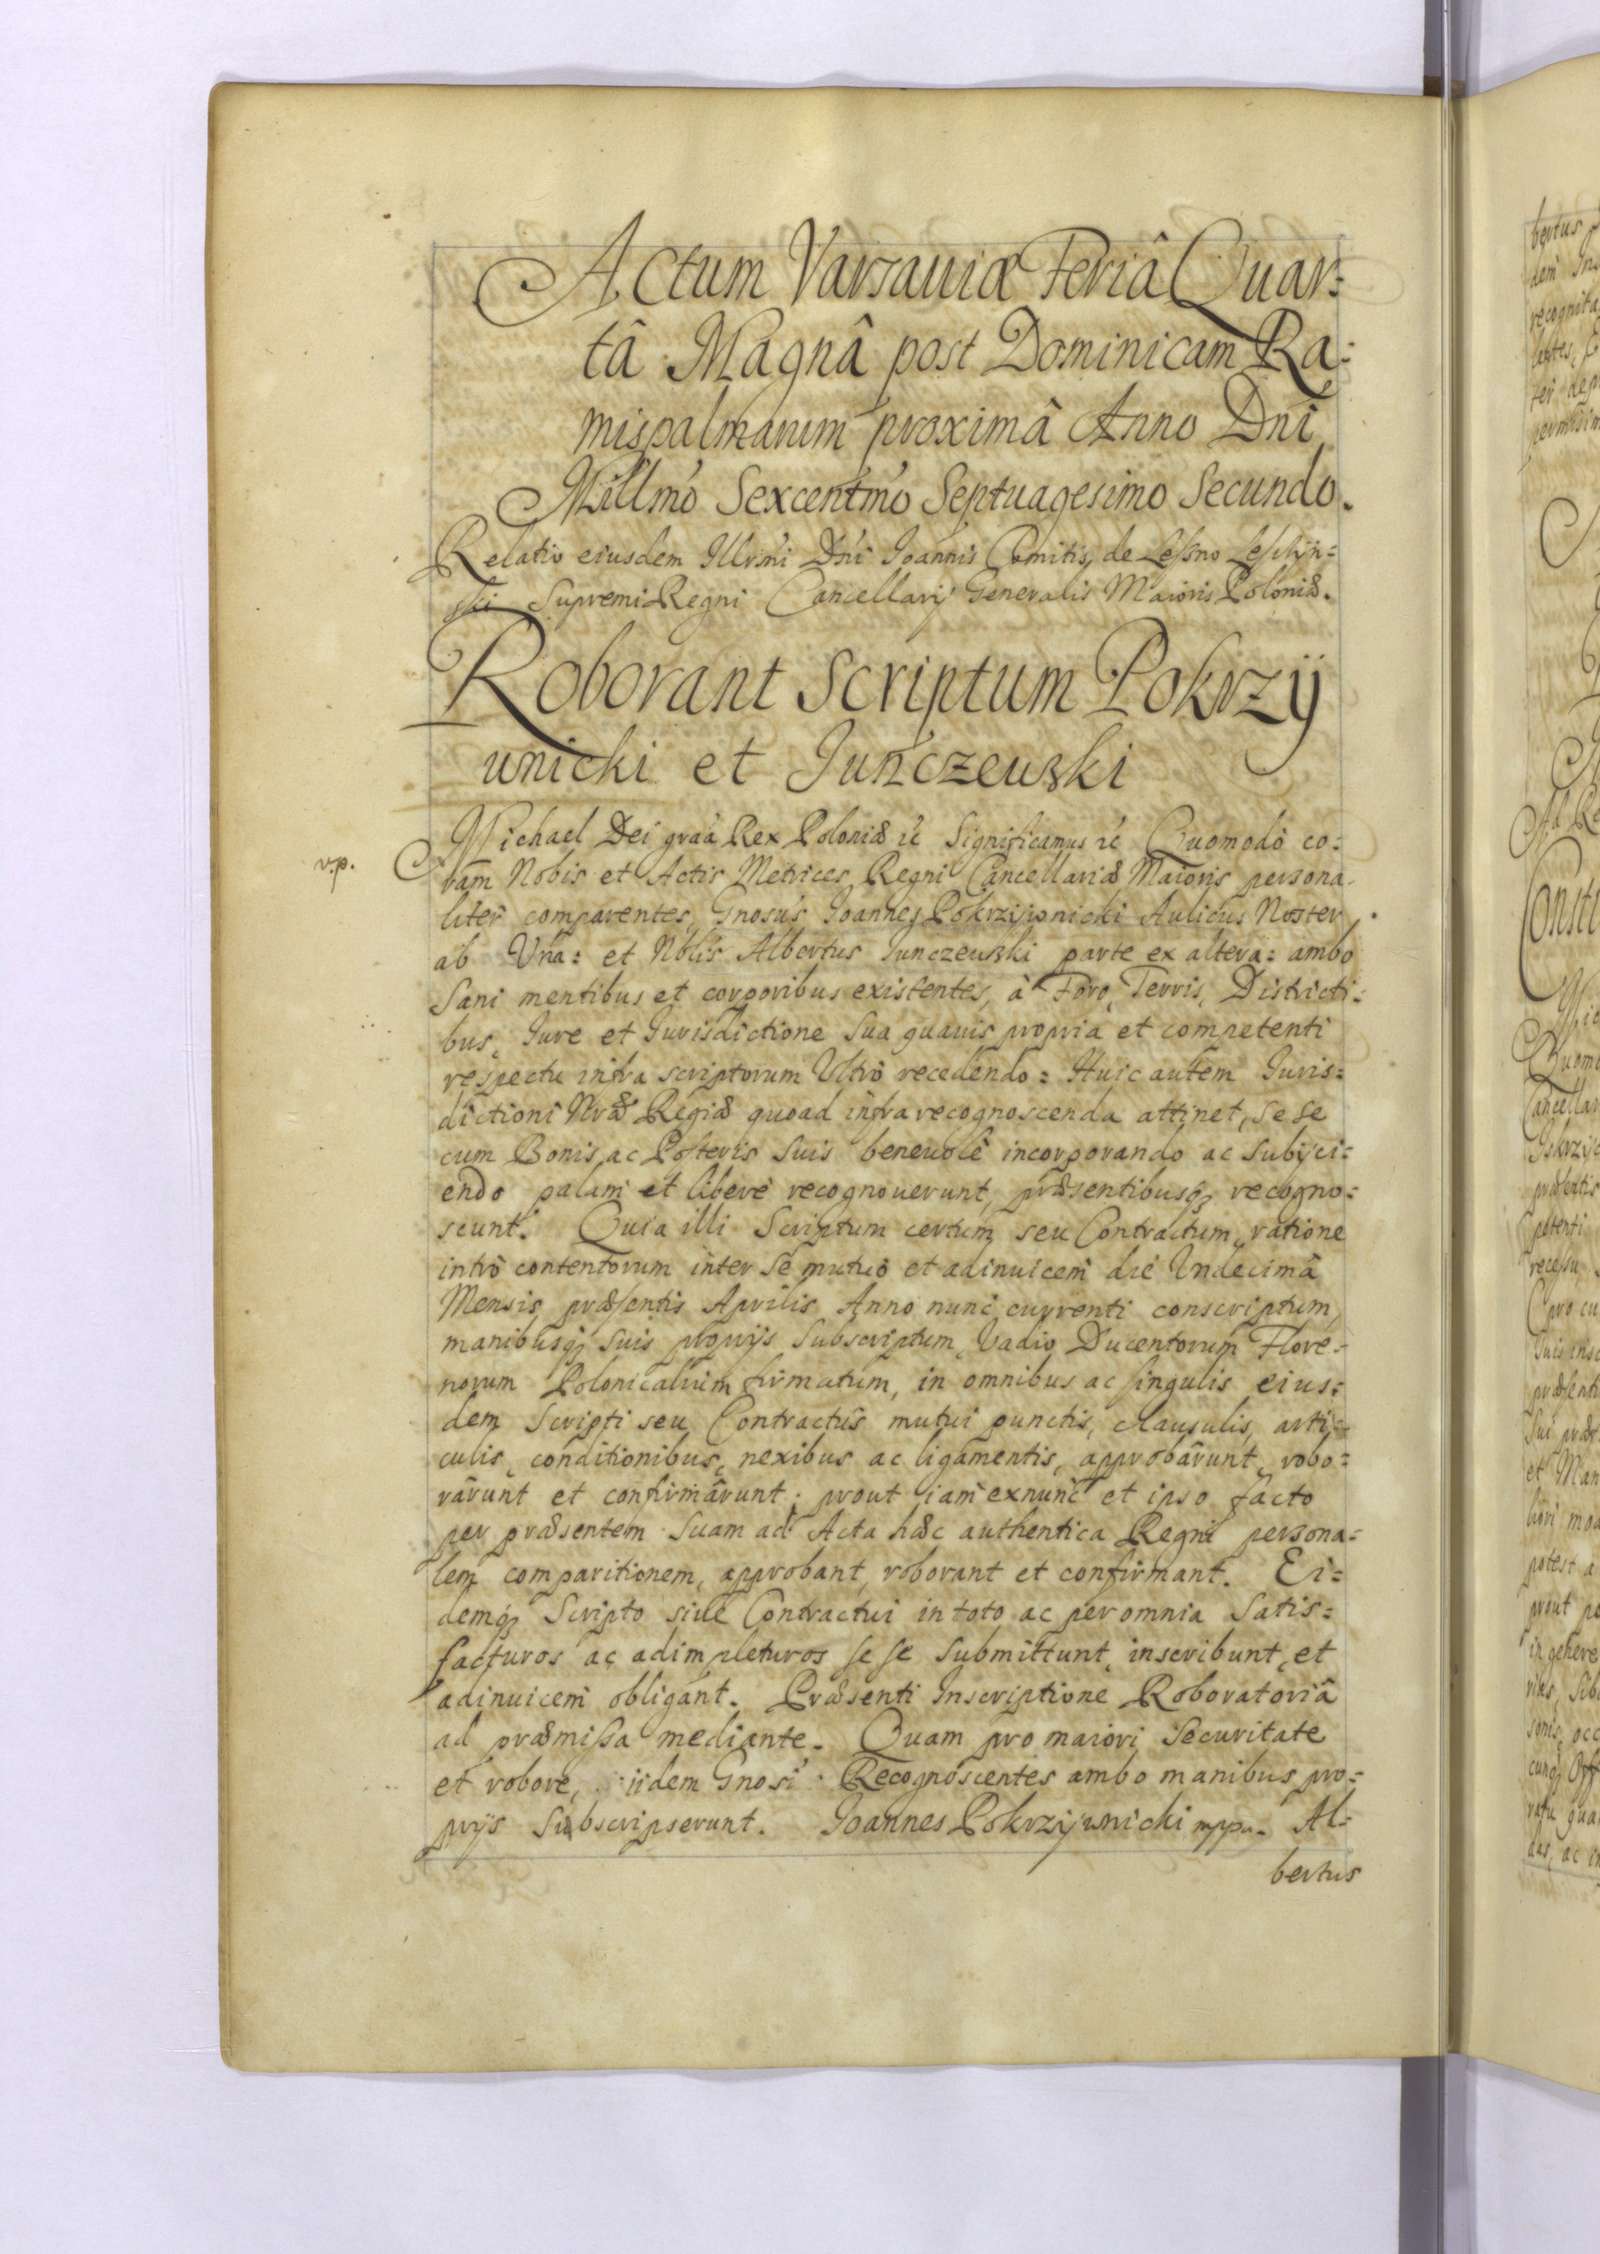 Actum Varsauiæ Feriâ Quar=
tâ Magnâ post Dominicam Ra=
mispalmarum proximâ Anno Dni
Millmo Sexcentmo Septuagesimo Secundo.
Relatio eiusdem Illrsmi Dni Joannis Comitis de Leszno Leszczyn=
ski Supremi Regni Cancellarij Generalis Maioris Poloniæ.
Roborant Scriptum Pokrzÿ
wnicki et Junczewski
v.p.
Michael Dei graa Rex Poloniæ &c Significamus &c Quomodò co=
ram Nobis et Actis Metrices Regni Cancellariæ Maioris persona-
liter comparentes, Gnosus Joannes Pokrzijwnicki Aulicus Noster
ab Vna: et Nblis Albertus Junczewski parte ex altera: ambo
Sani mentibus et corporibus existentes, à Foro, Terris, Districti=
bus, Jure et Jurisdictione sua quauis propria et competenti
respectu infra scriptorum Vltrò recedendo: Huic autem Juris=
dictioni Nræ Regiæ quoad infra recognoscenda attinet, se se
cum Bonis ac Posteris Suis beneuolè incorporando ac Subijci=
endo palam et liberè recognouerunt, præsentibusq; recogno=
scunt. Quia illi Scriptum certum seu Contractum, ratione
intrò contentorum inter se mutuò et adinuicem die Vndecimâ
Mensis præsentis Aprilis Anno nunc currenti conscriptum,
manibusq; suis proprijs Subscriptum, Vadio Ducentorum Flore=
norum Polonicalium firmatum, in omnibus ac singulis eius=
dem Scripti seu Contractûs mutui punctis, clausulis, arti=
culis, conditionibus, nexibus ac ligamentis, approbârunt, robo=
rârunt et confirmârunt; prout iam exnunc et ipso facto
per præsentem suam ad Acta hæc authentica Regni persona=
lem comparitionem, approbant, roborant et confirmant. Ei=
demq; Scripto siue Contractui in toto ac per omnia Satis=
facturos ac adimpleturos se se submittunt, inscribunt, et
adinuicem obligant. Præsenti Inscriptione Roboratoriâ
ad præmissa mediante. Quam pro maiori Securitate
et robore, iidem Gnosi Recognoscentes ambo manibus pro=
prijs Subscripserunt. Joannes Pokrzijwnicki mppa. Al=
bertus